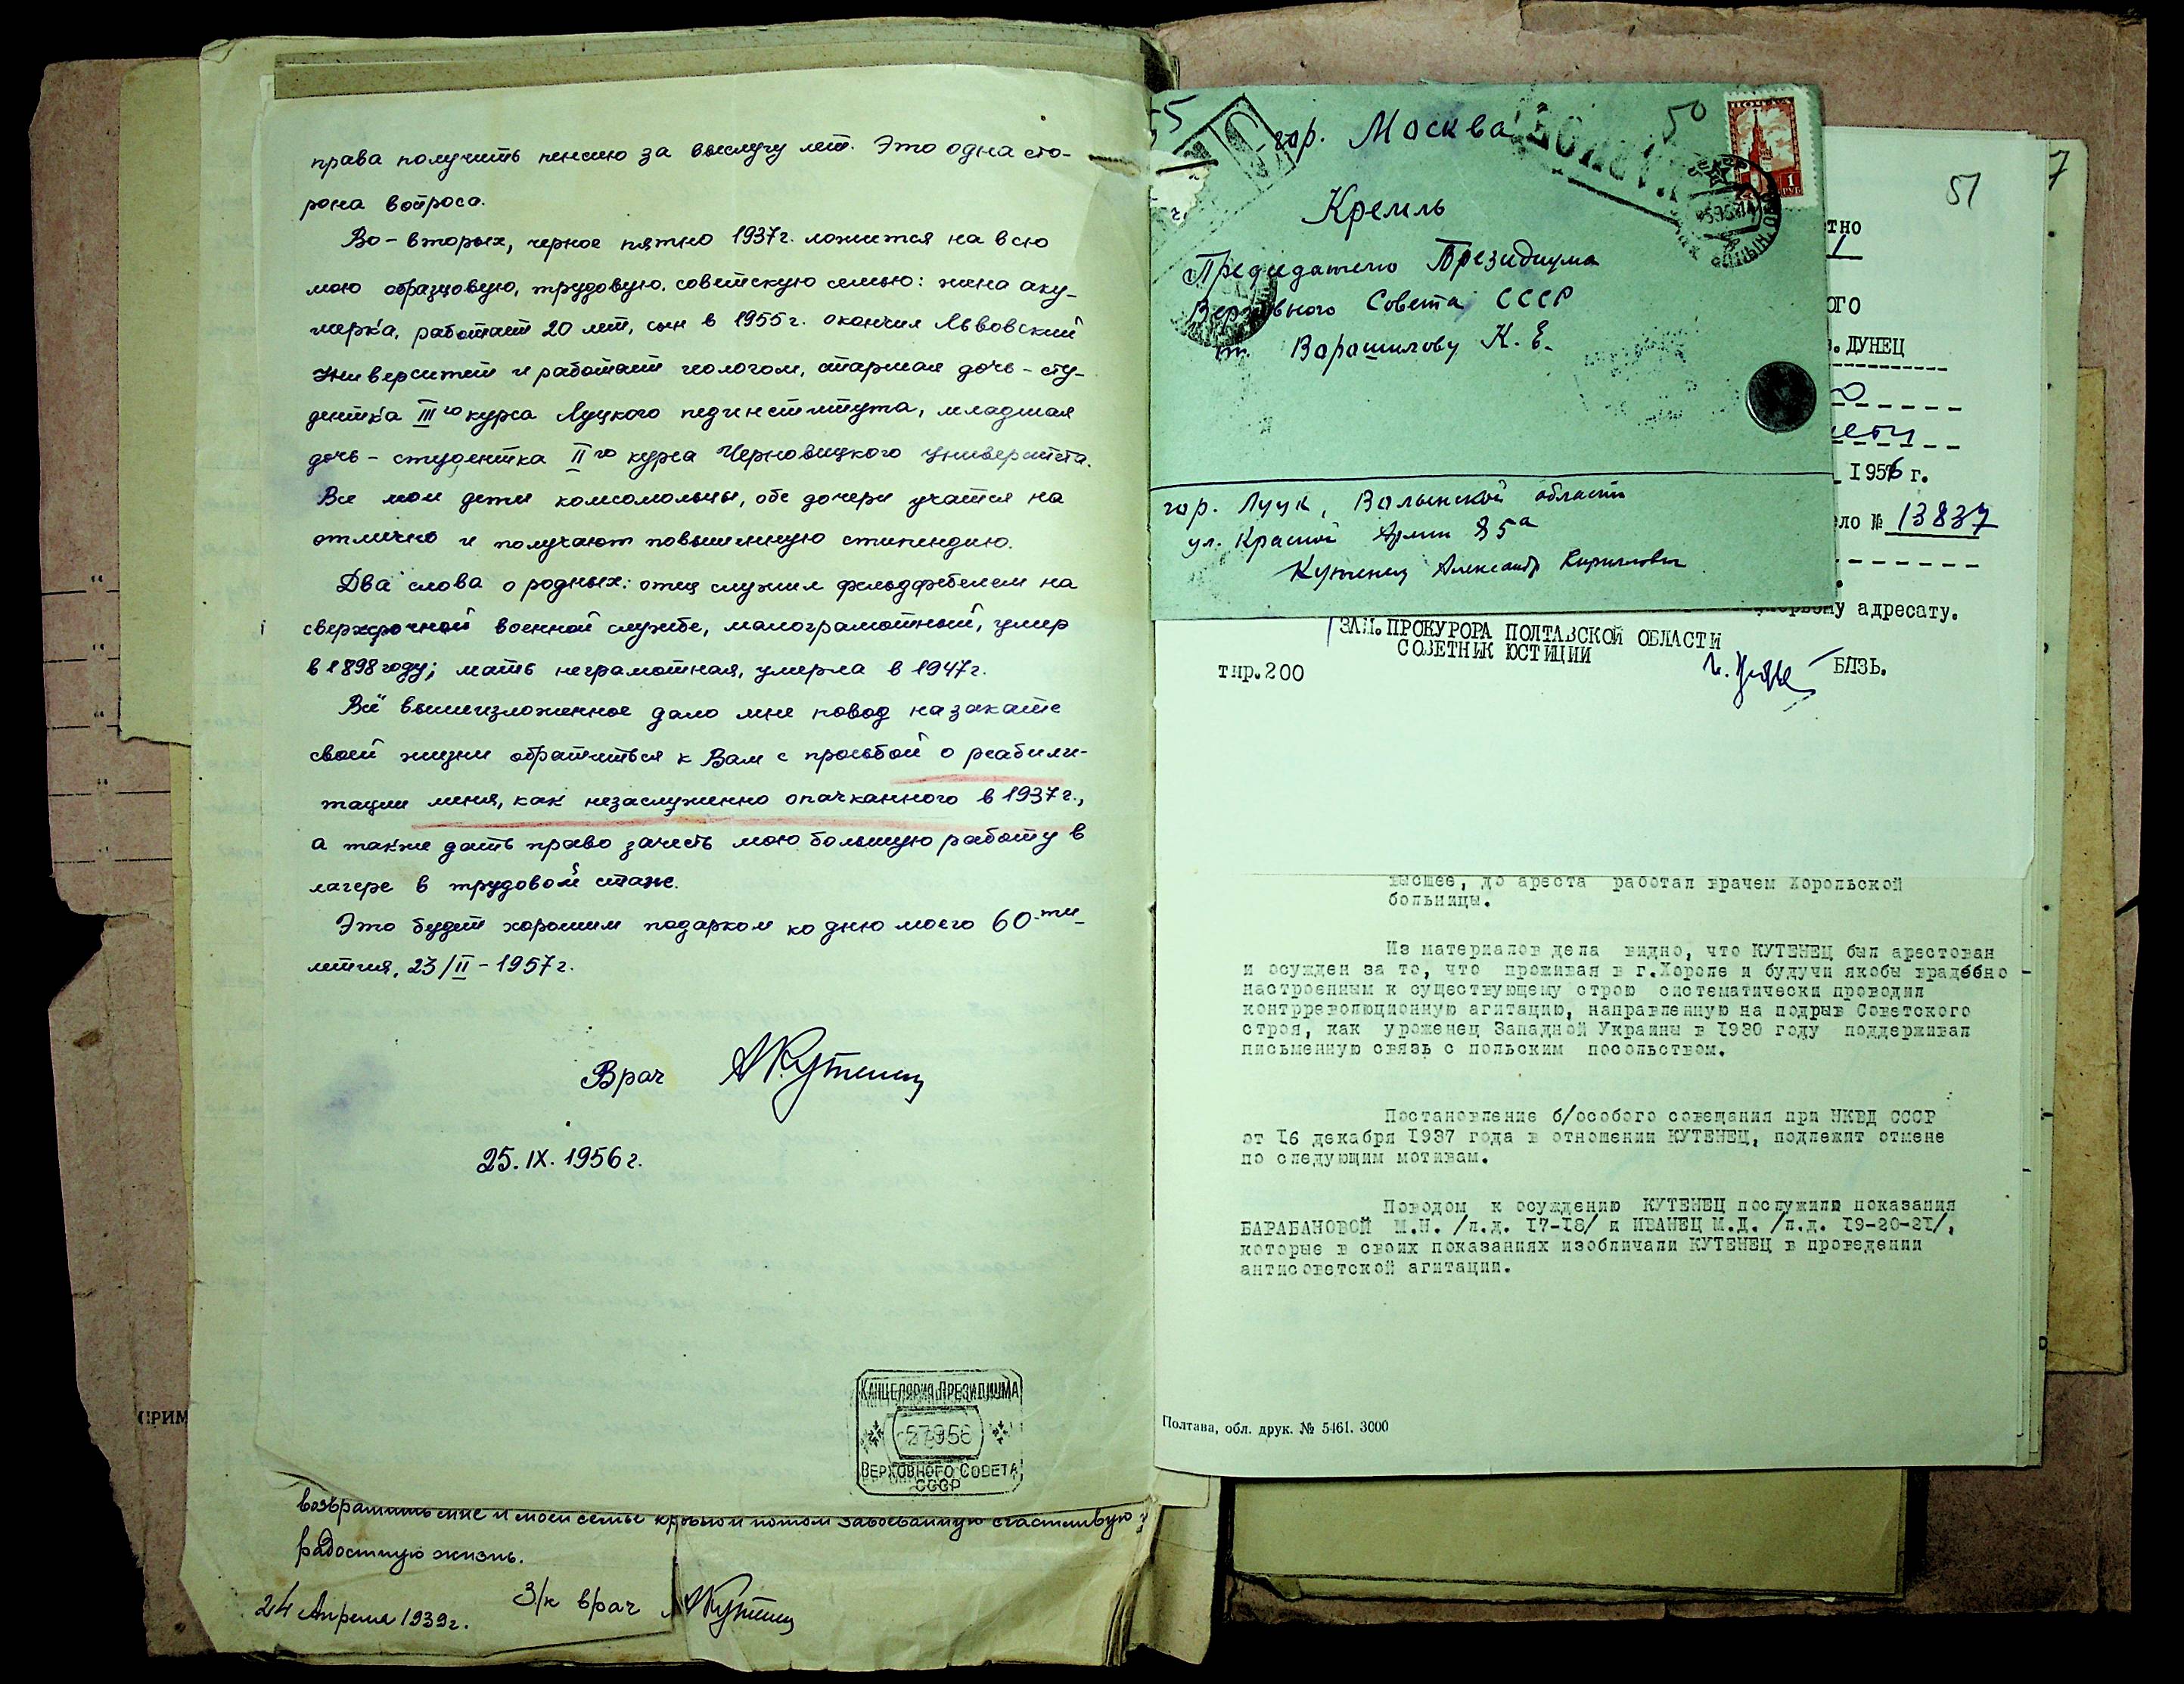 права получить пенсию за выслугу лет. Это одна сто-
рона вопроса.
Во-вторых, черное пятно 1937г. ложится на всю
мою образцовую, трудовую, советскую семью: жена аку-
шерка, работает 20 лет, сын в 1955г. окончил Львовский
Университет и работает геологом, старшая дочь - сту-
дентка III го курса Луцкого пединститута, младшая
дочь - студентка II го курса Черновицкого университета.
Все мои дети комсомольцы, обе дочери учатся на
отлично и получают повышенную стипендию.
Два слова о родных: отец служил фельдфебелем на
сверхсрочной военной службе, малограмотный, умер
в 1898 году; мать неграмотная, умерла в 1947г.
Всё вышеизложенное дало мне повод на закате
своей жизни обратиться к Вам с просьбой о реабили-
тации меня, как незаслуженно опачканного в 1937г.,
а также дать право зачесть мою большую работу в
лагере в трудовой стаж.
Это будет хорошим подарком ко дню моего 60-ти-
летия, 23/II-1957г.
Врач АКутенец
25.IX.1956г.
КАНЦЕЛЯРИЯ ПРЕЗИДИУМА
ВЕРХОВНОГО СОВЕТА
СССР
возвратить мне и моей семье кровью и потом завоеванную счастливую и
радостную жизнь.
24 Апреля 1939г. З/к врач АКутенец
ПРИМ
55
50
гор. Москва
Кремль
Председателю Президиума
Верховного Совета СССР
т. Ворошилову К. Е.
ПОЧТА
1
РУБ
гор. Луцк, Волынской области
ул. Красной Армии 85а
Кутенец Александр Кириллович
51
7
етно
ого
. ДУНЕЦ
1956 г.
ело № 13837
адресату.
ЗАМ. ПРОКУРОРА ПОЛТАВСКОЙ ОБЛАСТИ
СОВЕТНИК ЮСТИЦИИ
БАЗЬ.
тир.200
высшее, до ареста работал врачем Хорольской
больницы.
Из материалов дела видно, что КУТЕНЕЦ был арестован
и осужден за то, что проживая в г.Хороле и будучи якобы врадебно
настроенным к существующему строю систематически проводил
контрреволюционную агитацию, направленную на подрыв Советского
строя, как уроженец Западной Украины в 1930 году поддерживал
письменную связь с польским посольством.
Постановление б/особого совещания при НКВД СССР
от 16 декабря 1937 года в отношении КУТЕНЕЦ, подлежит отмене
по следующим мотивам.
Поводом к осуждению КУТЕНЕЦ послужили показания
БАРАБАНОВОЙ М.Н. /л.д. 17-18/ и ИВАНЕЦ М.Д. /л.д. 19-20-21/,
которые в своих показаниях изобличали КУТЕНЕЦ в проведении
антисоветской агитации.
Полтава, обл. друк. № 5461. 3000